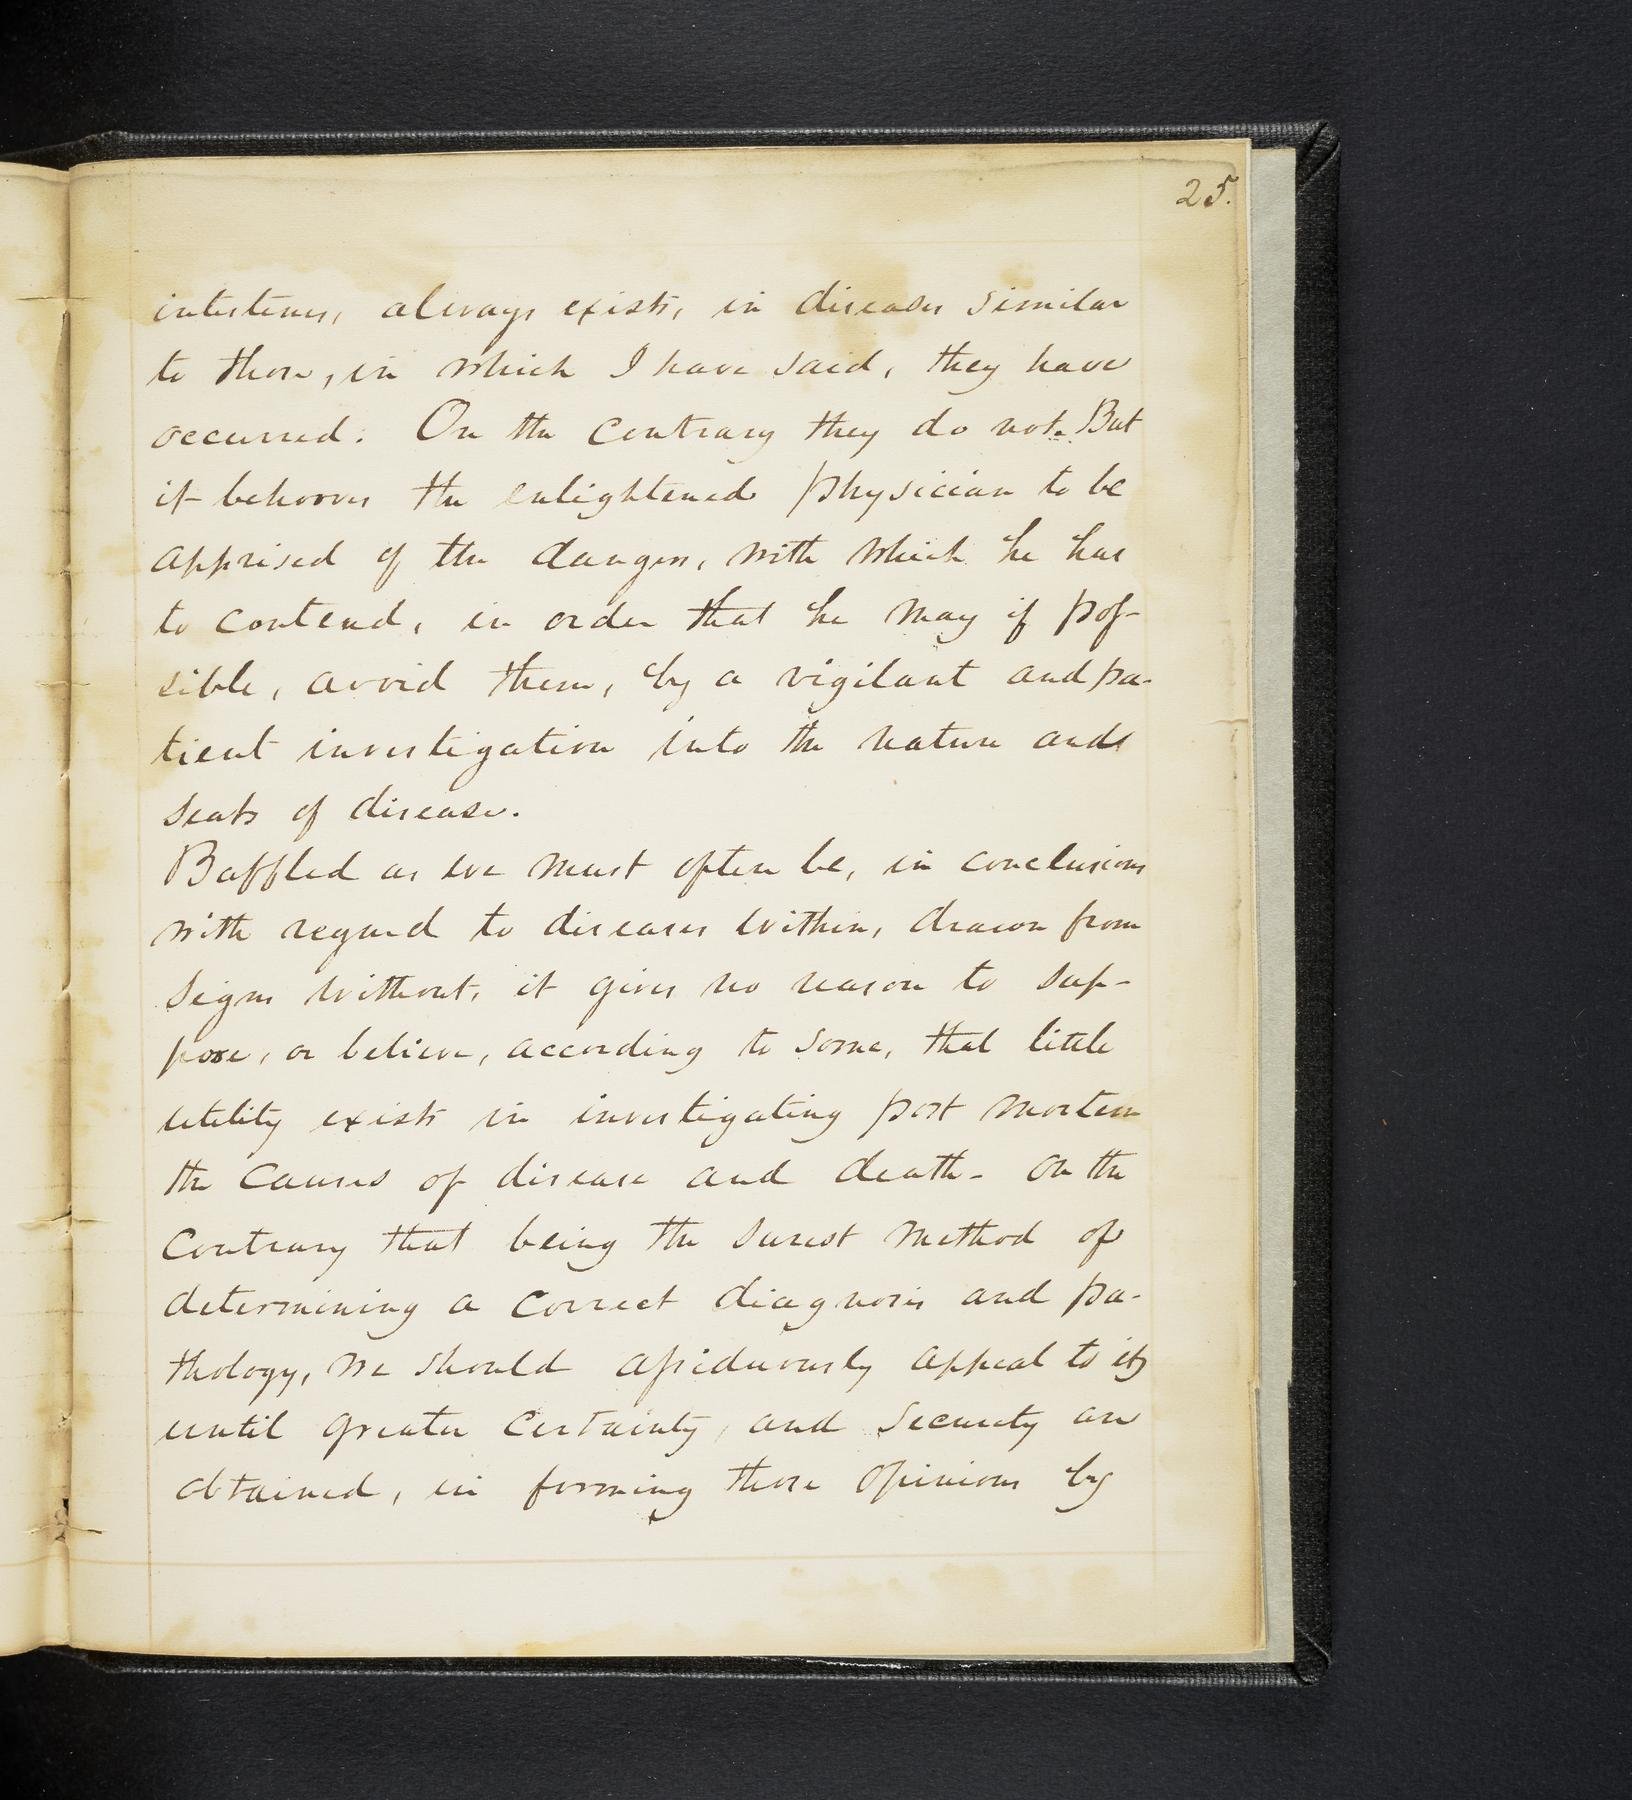 25.
intestines, always exists, in diseases similar
to those, in which I have said, they have
occurred. On the contrary they do not. But
it behooves the enlightened physician to be
apprised of the dangers, with which he has
to contend, in order that he may if pos-
sible, avoid them, by a vigilant and pa-
tient investigation into the nature and
seats of disease.
Baffled as we must often be, in conclusions
with regard to diseases within, drawn from
signs without, it gives no reason to sup-
pose, or believe, according to some, that little
utility exists in investigating post mortem
the causes of disease and death - On the
contrary that being the surest method of
determining a correct diagnosis and pa-
thology, we should assiduously appeal to it,
until greater certainty, and security are
obtained, in forming those opinions by